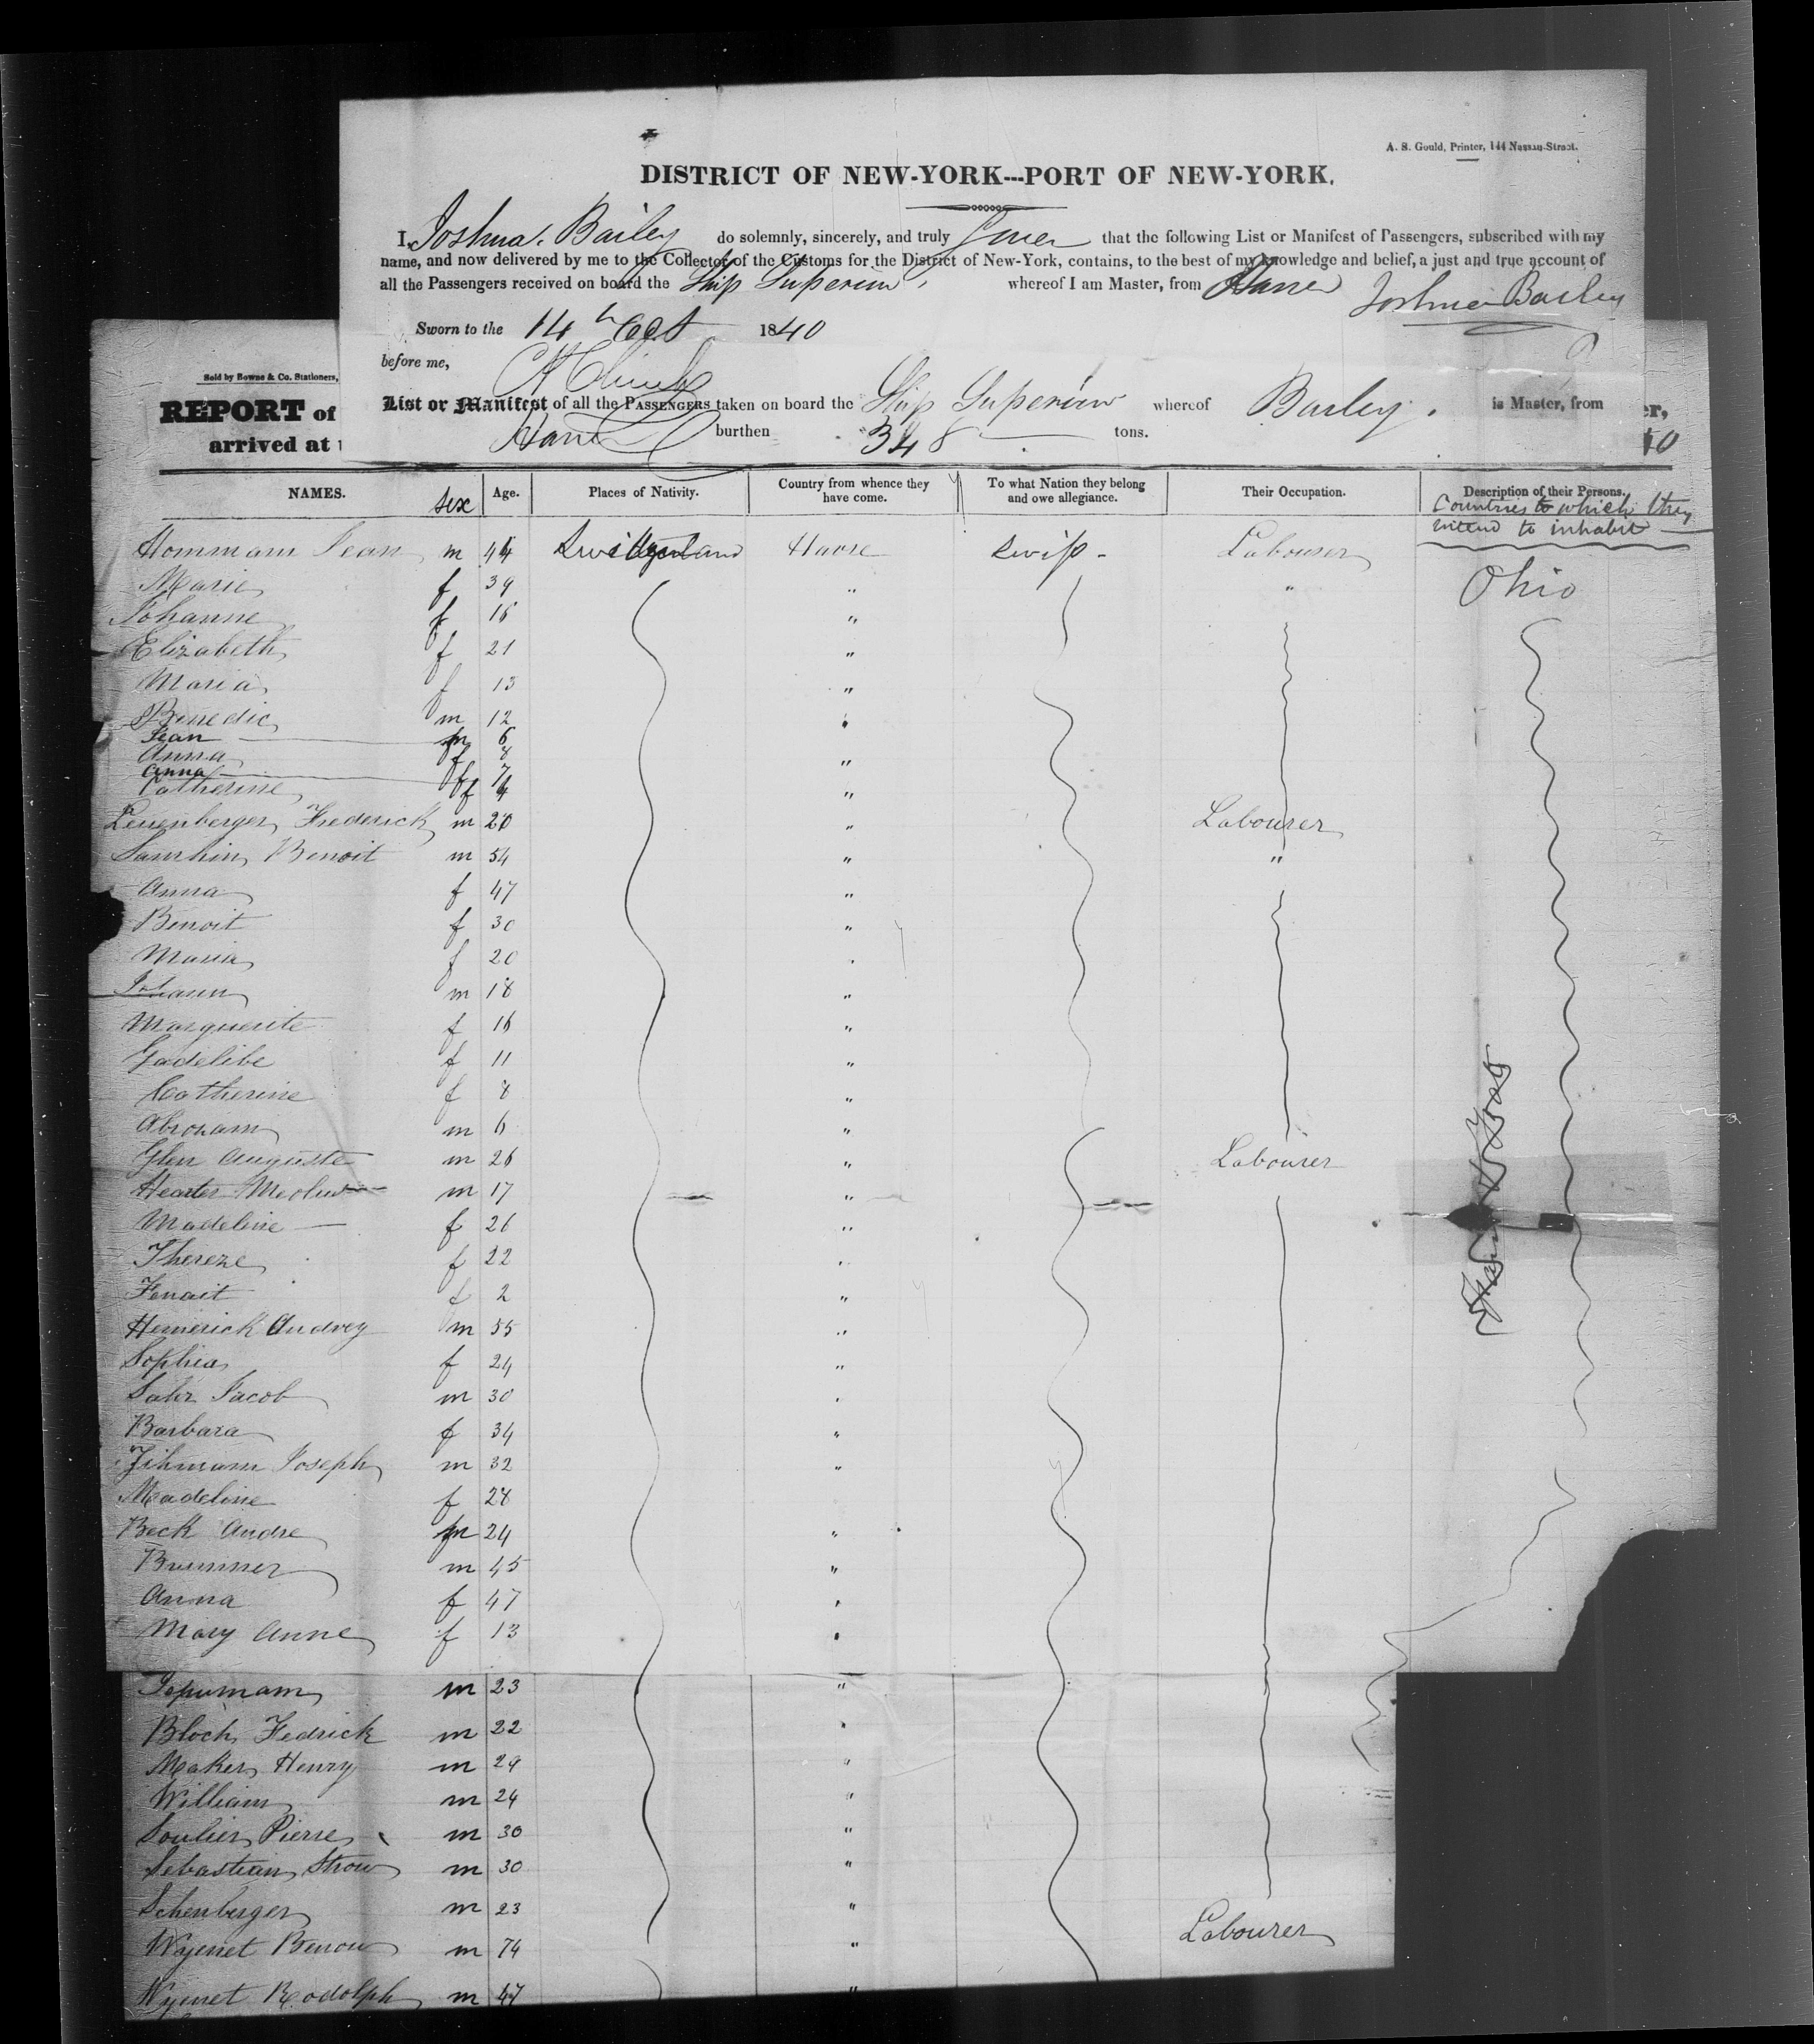 A. S. Gould, Printer, 144 Nassau-Street.
DISTRICT OF NEW-YORK---PORT OF NEW-YORK.
I, Joshua Bailey do solemnly, sincerely, and truly swear that the following List or Manifest of Passengers, subscribed with my
name, and now delivered by me to the Collector of the Customs for the District of New-York, contains, to the best of my knowledge and belief, a just and true account of
all the Passengers received on board the Ship Superior whereof I am Master, from Havre Joshua Bailey
Sworn to the 14th Oct 1840
before me,
List or Manifest of all the PASSENGERS taken on board the Ship Superior whereof Bailey is Master, from
Havre burthen 348 tons.
Sold by Bowne & Co. Stationers,
REPORT of
arrived at
NAMES. sex Age. Places of Nativity. Country from whence they have come. To what Nation they belong and owe allegiance. Their Occupation. Description of their Persons.
Countries to which they
intend to inhabit
Hommam Jean m 44 Switzerland Havre Swiss Labourer
Marie f 39 " " Ohio
Johanne f 16 "
Elizabeth f 21 "
Maria f 13 "
Benedic m 12 "
Jean m 6
Anna f 8 "
Anna f 7
Catherine f 4 "
Leuenberger Frederick m 20 " Labourer
Samhin Benoit m 54 " "
Anna f 47 "
Benoit f 30 "
Maria f 20 "
Johann m 18 "
Marguerite f 16 "
Gadelibe f 11 "
Catherine f 8 "
Abraham m 6 "
Glen Auguste m 26 " Labourer
m 17 "
Madeline f 26 "
Thereze f 22 "
f 2 "
Hemerick Andrey m 55 "
Sophia f 24 "
Sahr Jacob m 30 "
Barbara f 34 "
Zihmam Joseph m 32 "
Madeline f 28
Beck Andre m 24 "
Brunner m 45 "
Anna f 47 "
Mary Anne f 13 "
m 23 "
Bloch Fedrick m 22 "
Maker Henry m 29 "
William m 24 "
Soulier Pierre m 30 "
Sebastian Strow m 30 "
Schenberger m 23 "
Wyenet Benow m 74 " Labourer
Wyenet Rodolph m 47 "